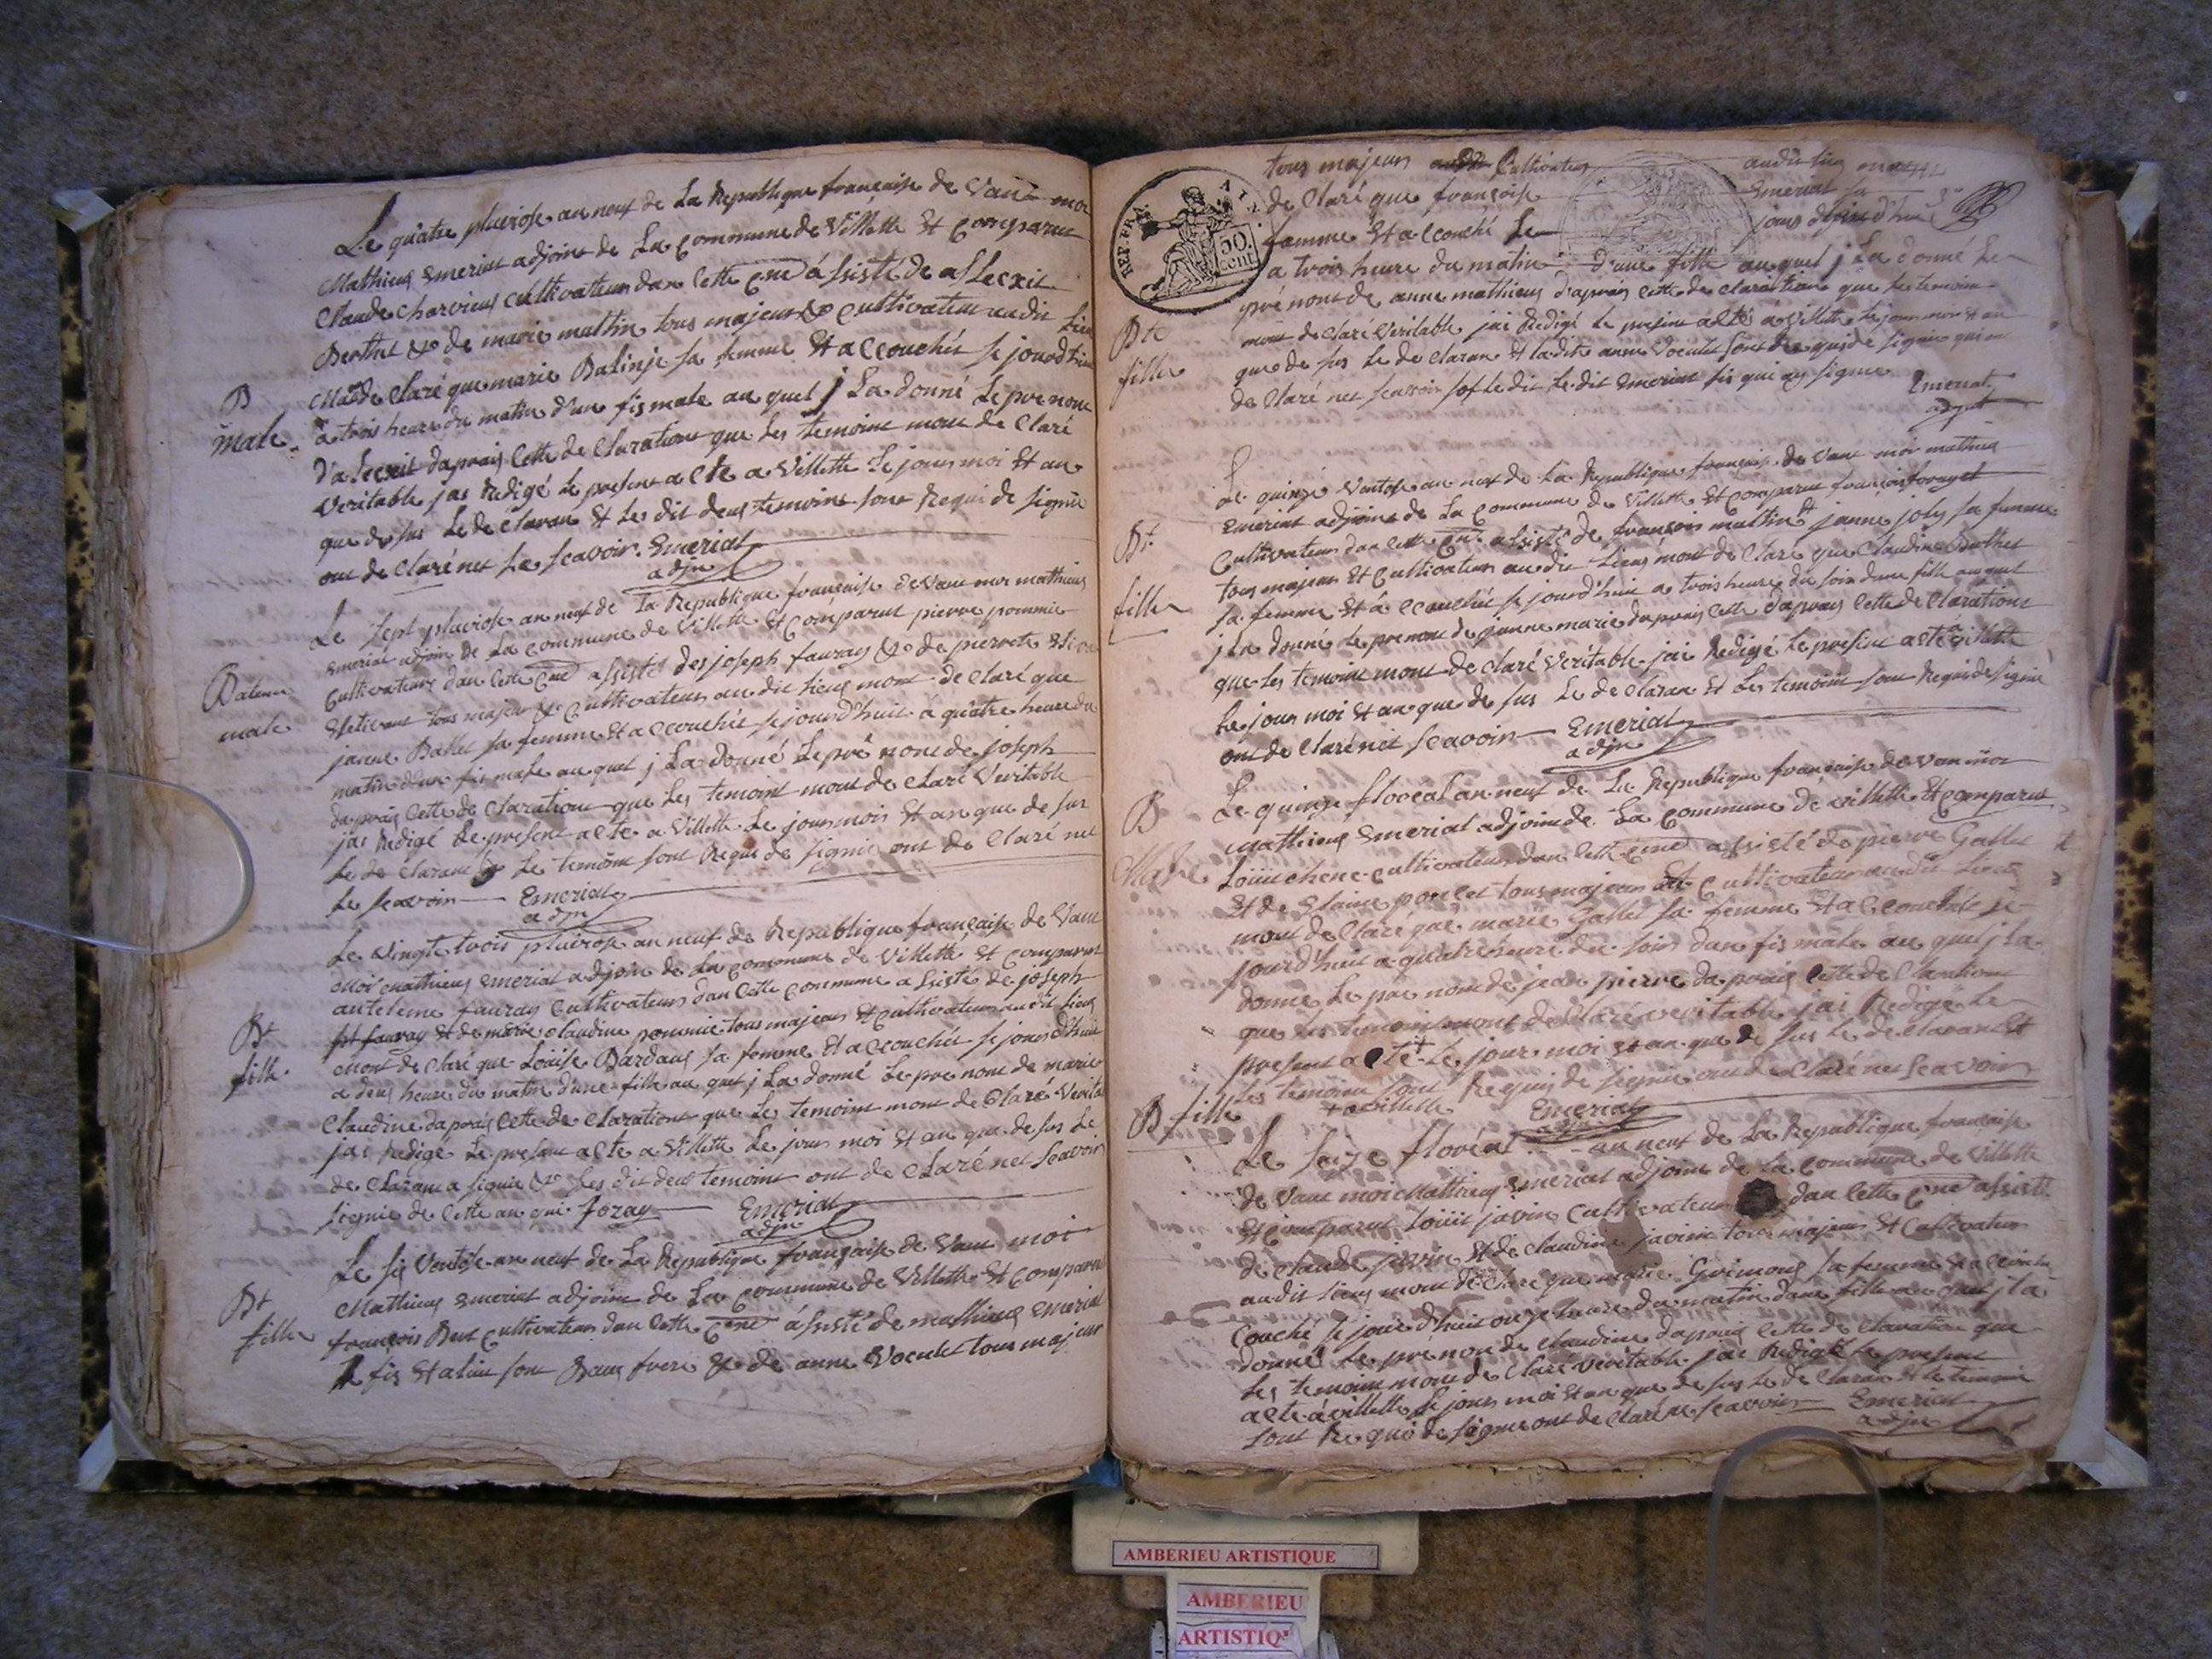 Le quatre pluviose an neuf de La Republique françaisse de Vant moi
Mathieus Emeriat adjoint de La Commune de Villette Et Comparut
Claude Charvieus Cultivateur dan Cette Cne assisté de allecxit
Berthet & de marie multin tous majeurs & Cultivateur audit Lieu
B
male
de Claré que marie Balinje sa femme Et accouchée se jourd'hui
a trois heure du matin d'un fis male au quel j La donné Le prenom
d'allecxit daprais Cette de Claration que Les temoins mont de Claré
Veritable jai Redigé Le present acte a Villette Le jours moi Et an
que de sus Le de Claran Et Les dit deus temoins sont Requi de signié
ont de Claré net Le scavoir. Emeriat
adjn
Le sept pluviose an neuf de La Republique française de Vant moi mathieus
Emeriat adjoin de La Commune de Villette Et Comparut pierre pommie
Cultivateurs dan Cette Cne assisté des joseph fauray & de pierrete
tous majeur & Cultivateur au dit Lieus mont de Claré que
male
janne Ballet sa femme Et accouchée se jourd'huit à quatre heure du
matin d'un fis male au quel j La donné Le pré nont de joseph
daprais Cette de Claration que Les temoint mont de Claré Veritable
jai Redigé Le present acte a Villette Le jours mois Et an que de sus
Le de Claran & Le temoint sont Requi de signié ont de Claré net
Le scavoir Emeriat
adjn
Le Vingte trois pluviose an neuf de Republique française de Vant
moi mathieus Emeriat adjoin de La Commune de Villette Et Comparut
anteleme fauray Cultivateurs dan Cette Commune assisté de joseph
fauray Et de marie claudine pommie tous majeurs Et Cultivateurs au dit Lieus
Bt
fille
mont de Claré que Loüise Bardaus sa femme Et accouchée se jours d'hui
a deus heure du matin d'une fille au quel j La donné Le pre nont de marie
Claudine daprais Cette de Claration que Les temoint mont de Claré Verita
jai Redigé Le present acte a Villette Le jours moi Et an que de sus Le
de Claran a signié & Les dit deus temoint ont de Claré net scavoir
signié de Cette an qui fozay Emeriat
adjn
Le sis Ventose an neuf de La Republique française de Vant moi
Bt
fille
Mathieus Emeriat adjoint de La Commune de Villette Et Comparut
françois Cultivateur dan Cette Cne assisté de mathieus Emeriat
fis sont Baus frere & de anne Voculet tous majeur
REP. FRA.
50.
CENT.
tous majeurs Cultivateur audit Lieu
de Claré que françoise Emeriat sa
famme Et accouché Le jours
a trois heure du matin d'une fille au quel j La donné Le
pré nont de anne mathieus daprais Cette de Claration que Les temoin
Bte
fille
mont de Claré Veritable jai Redigé Le present acté à Villette Le jour moi Et an
que de sus Le de Claran Et La dite anne Voculet sont Requis de signié qui on
de Claré net scavoir Le dit Emeriat fis qui ay signée
Emeriat
adjnt
Le quinze Ventose an neuf de La Republique française de Vant moi mathieus
Emeriat adjoint de La Commune de Villette Et Comparut françois
Bt
fille
Cultivateur dan Cette Cne assisté de françois multin Et janne joly sa femme
tous majeurs Et Cultivateur au dit Lieus mont de Claré que Claudine Berthet
sa femme Et accouchée se jourd'hui a trois heure du soir d'une fille au quel
j La donné Le prenom de janne marie daprais Cette de Claration
que Les temoint mont de Claré Veritable jai Redigé Le present acte a Villette
Le jours moi Et an que de sus Le de Claran Et Les temoint sont Requi de signié
ont de Claré net scavoir Emeriat
adjn
B
Male
Le quinze floréal an neuf de La Republique française de Van moi
mathieus Emeriat adjoint de La Commune de Villette Et Comparut
Loüit chene Cultivateur dan Cette Cne assisté de pierre Gallet
Et de poncet tous majeurs Et Cultivateur au dit Lieus
mont de Claré que marie Gallet sa femme Et accouchée se
jourd'huit a quatre heure du soir d'un fis male au quel j La
donné Le pre nont de jean pierre daprais Cette de Claration
que Les temoint mont de Claré Veritable jai Redigé Le
present acte Le jour moi Et an que de sus Le de Claran Et
Les temoint sont Requis de signié ont de Claré net scavoir
+ a Villette Emeriat
adjn
B fille
Le seize floréal an neuf de La Republique française
de Vant moi Mathieus Emeriat adjoint de La Commune de Villette
Et Comparut Loüit javin Cultivateur dan Cette Cne assisté
de Claude javin Et de Claudine javin tous majeur Et Cultivateur
audit Lieus mont de Claré que marie Guimons sa femme Et
Couché se jour d'huit onze heure du matin d'une fille au quel j La
donné Le pre nont de Claudine daprais Cette de Claration que
Les temoint mont de Claré Veritable jai Redigé Le present
acte à Villette Le jours moi Et an que de sus Le de Claran Et Le temoin
sont Requi de signie ont de Claré ne scavoir Emeriat
adjn
AMBERIEU ARTISTIQUE
AMBERIEU
ARTISTIQ